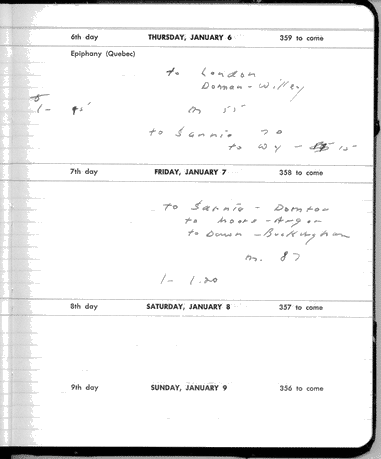 6th day THURSDAY, JANUARY 6 359 to come
Epiphany (Quebec)
to London
Doman - Willey
m 55
to Sarnia 70
to Wy - 15
7th day FRIDAY, JANUARY 7 358 to come
to Sarnia -
to Moore -
to Dawn - Buckingham
m. 87
1- 1.20
8th day SATURDAY, JANUARY 8 357 to come
9th day SUNDAY, JANUARY 9 356 to come